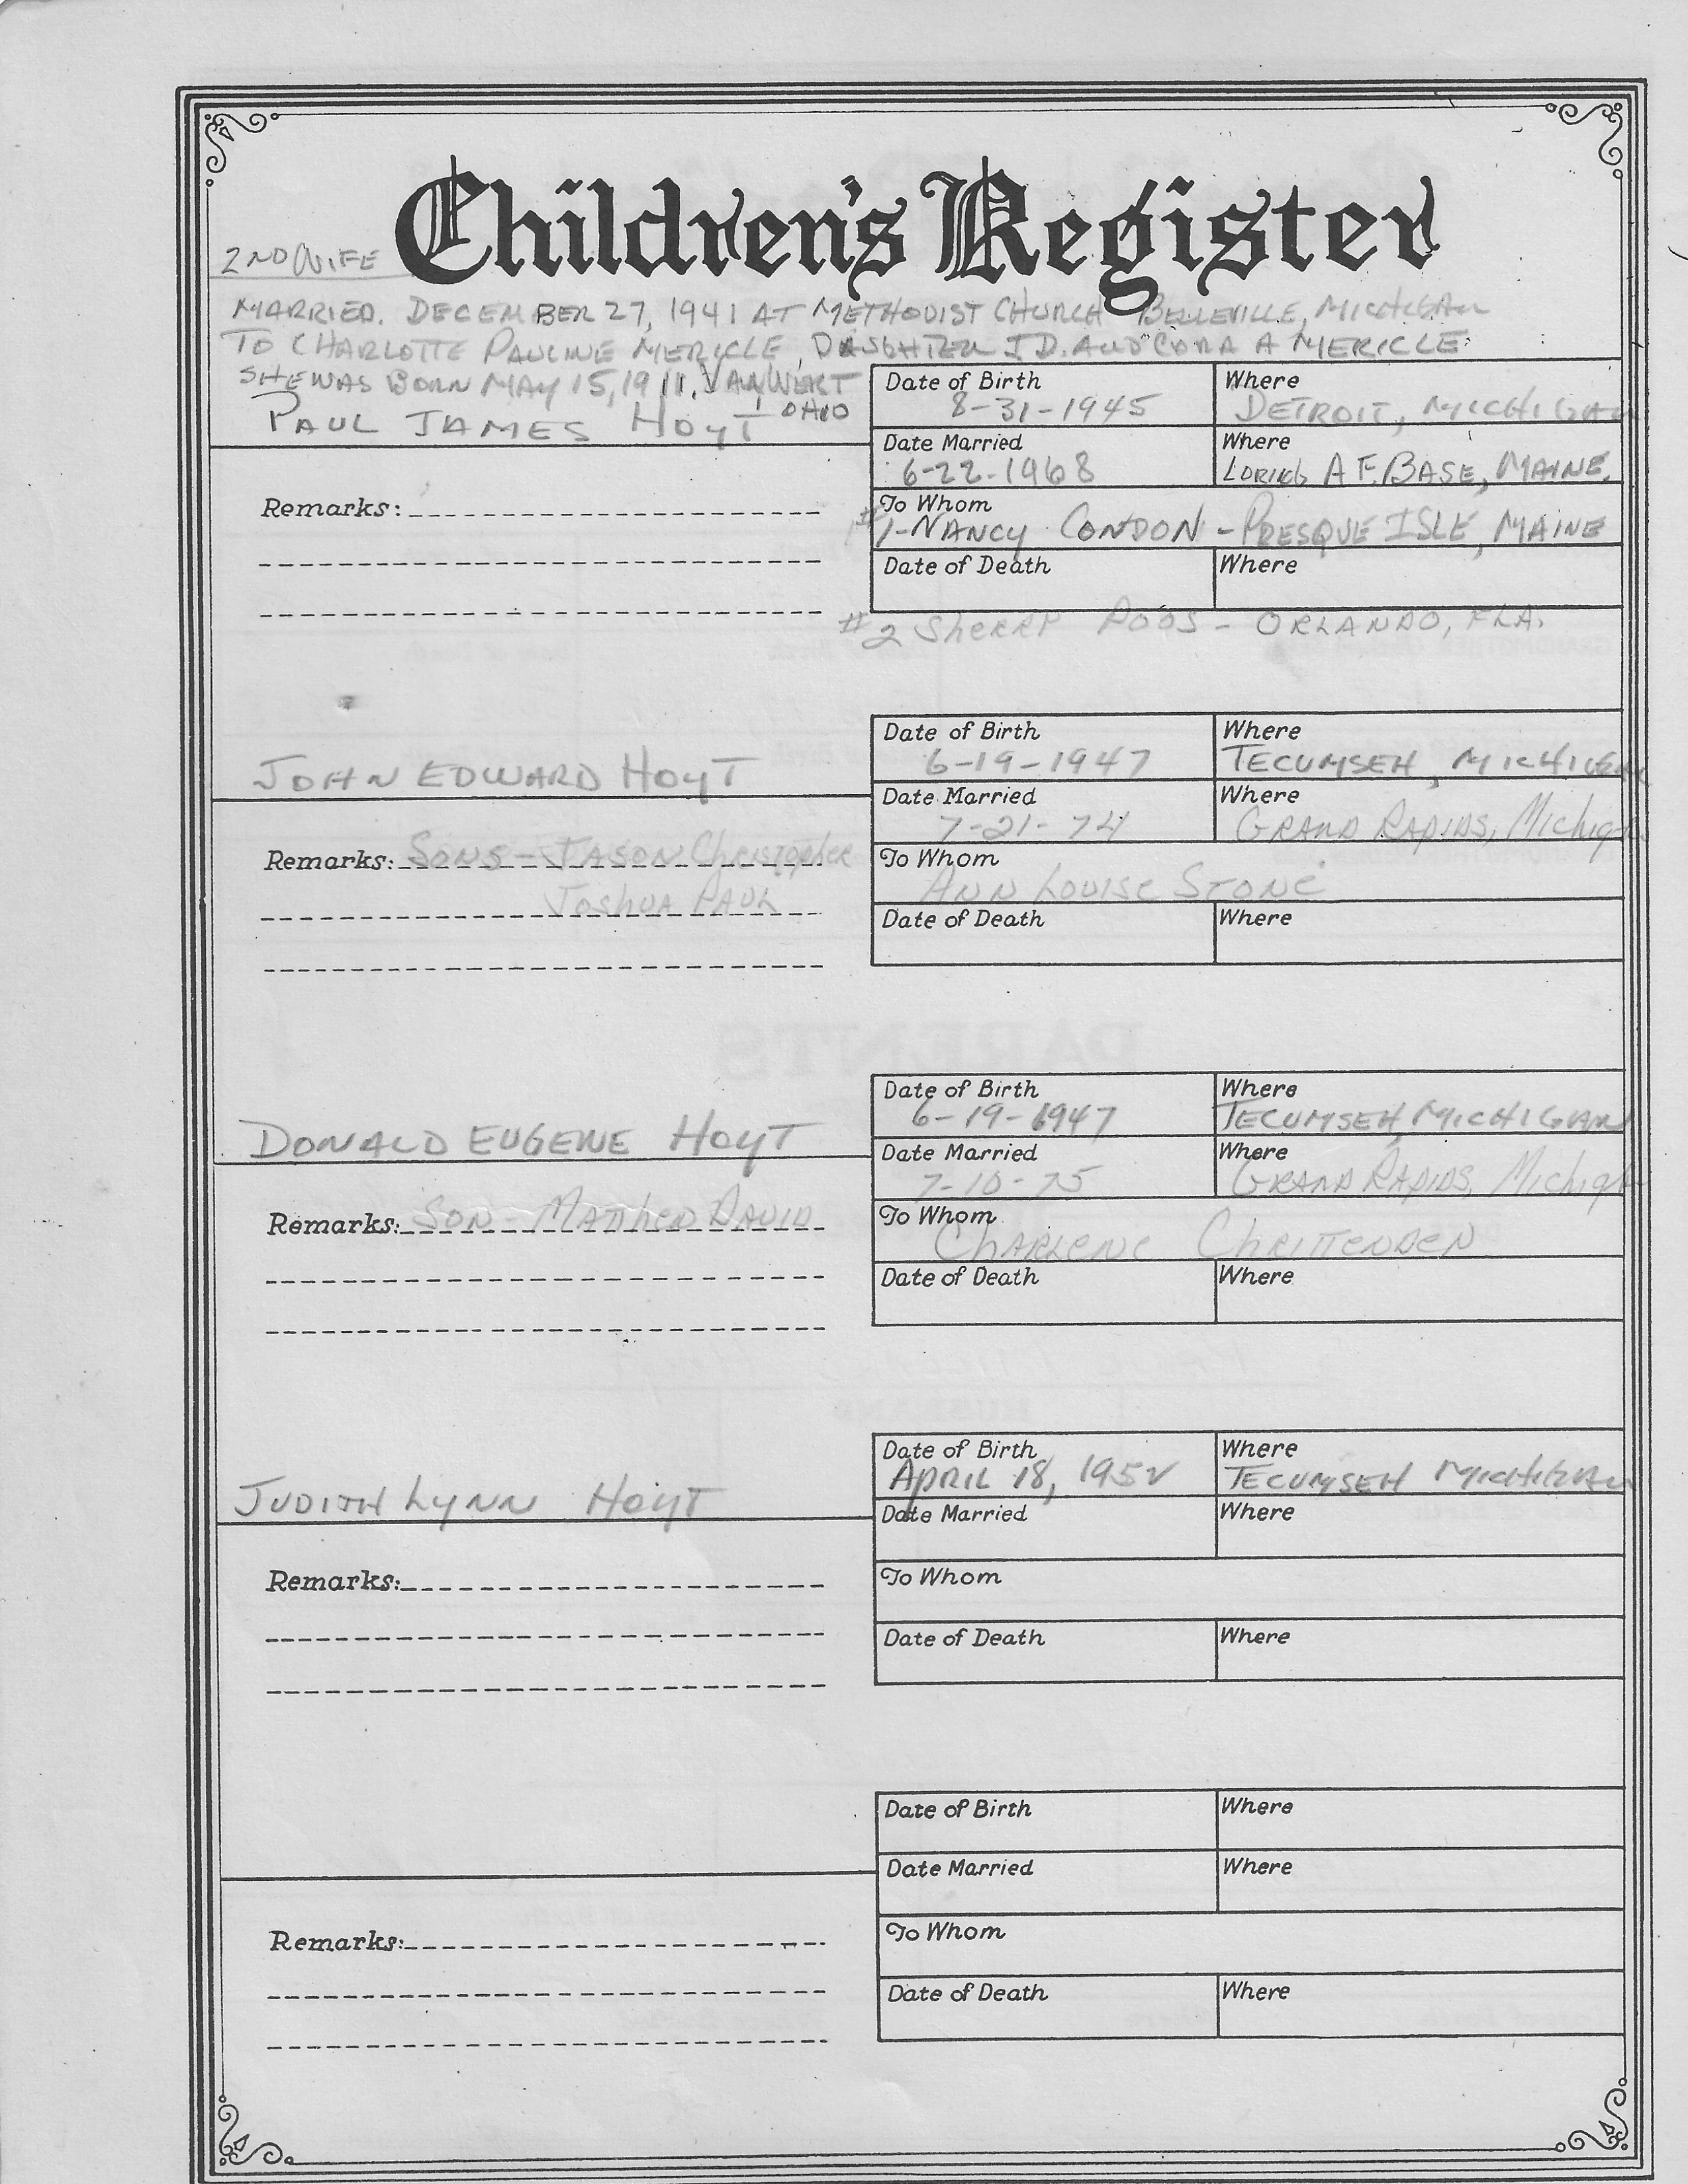 Children's Register
2ND WIFE
MARRIED. DECEMBER 27, 1941 AT METHODIST CHURCH BELLEVILLE, MICHIGAN
TO CHARLOTTE PAULINE MERICLE, DAUGHTER J.D. AND CORA A MERICLE.
SHE WAS BORN MAY 15, 1911, VAN WERT
OHIO
PAUL JAMES HOYT
Date of Birth Where
8-31-1945 DETROIT, MICHIGAN
Date Married Where
6-22-1968 LORING A F. BASE, MAINE.
Remarks:
To Whom
#1-NANCY CONDON - PRESQUE ISLE, MAINE
Date of Death Where
#2 SHERRP ROOS - ORLANDO, FLA.
Date of Birth Where
6-19-1947 TECUMSEH, MICHIGAN
JOHN EDWARD HOYT
Date Married Where
7-21-74 GRAND RAPIDS, Michig
Remarks: SONS - JASON ChRISTOPheR
To Whom
ANN LOUISE STONE
JOShUA PAUL
Date of Death Where
Date of Birth Where
6-19-1947 TECUMSEH, MICHIGAN
DONALD EUGENE HOYT
Date Married Where
7-10-75 GRAND RAPIDS, Michig
Remarks: SON - MATTHEW DAVID
To Whom
ChARLENE ChRITTENDEN
Date of Death Where
Date of Birth Where
APRIL 18, 1952 TECUMSEH MICHIGAN
JUDITH LYNN HOYT
Date Married Where
Remarks:
To Whom
Date of Death Where
Date of Birth Where
Date Married Where
Remarks:
To Whom
Date of Death Where